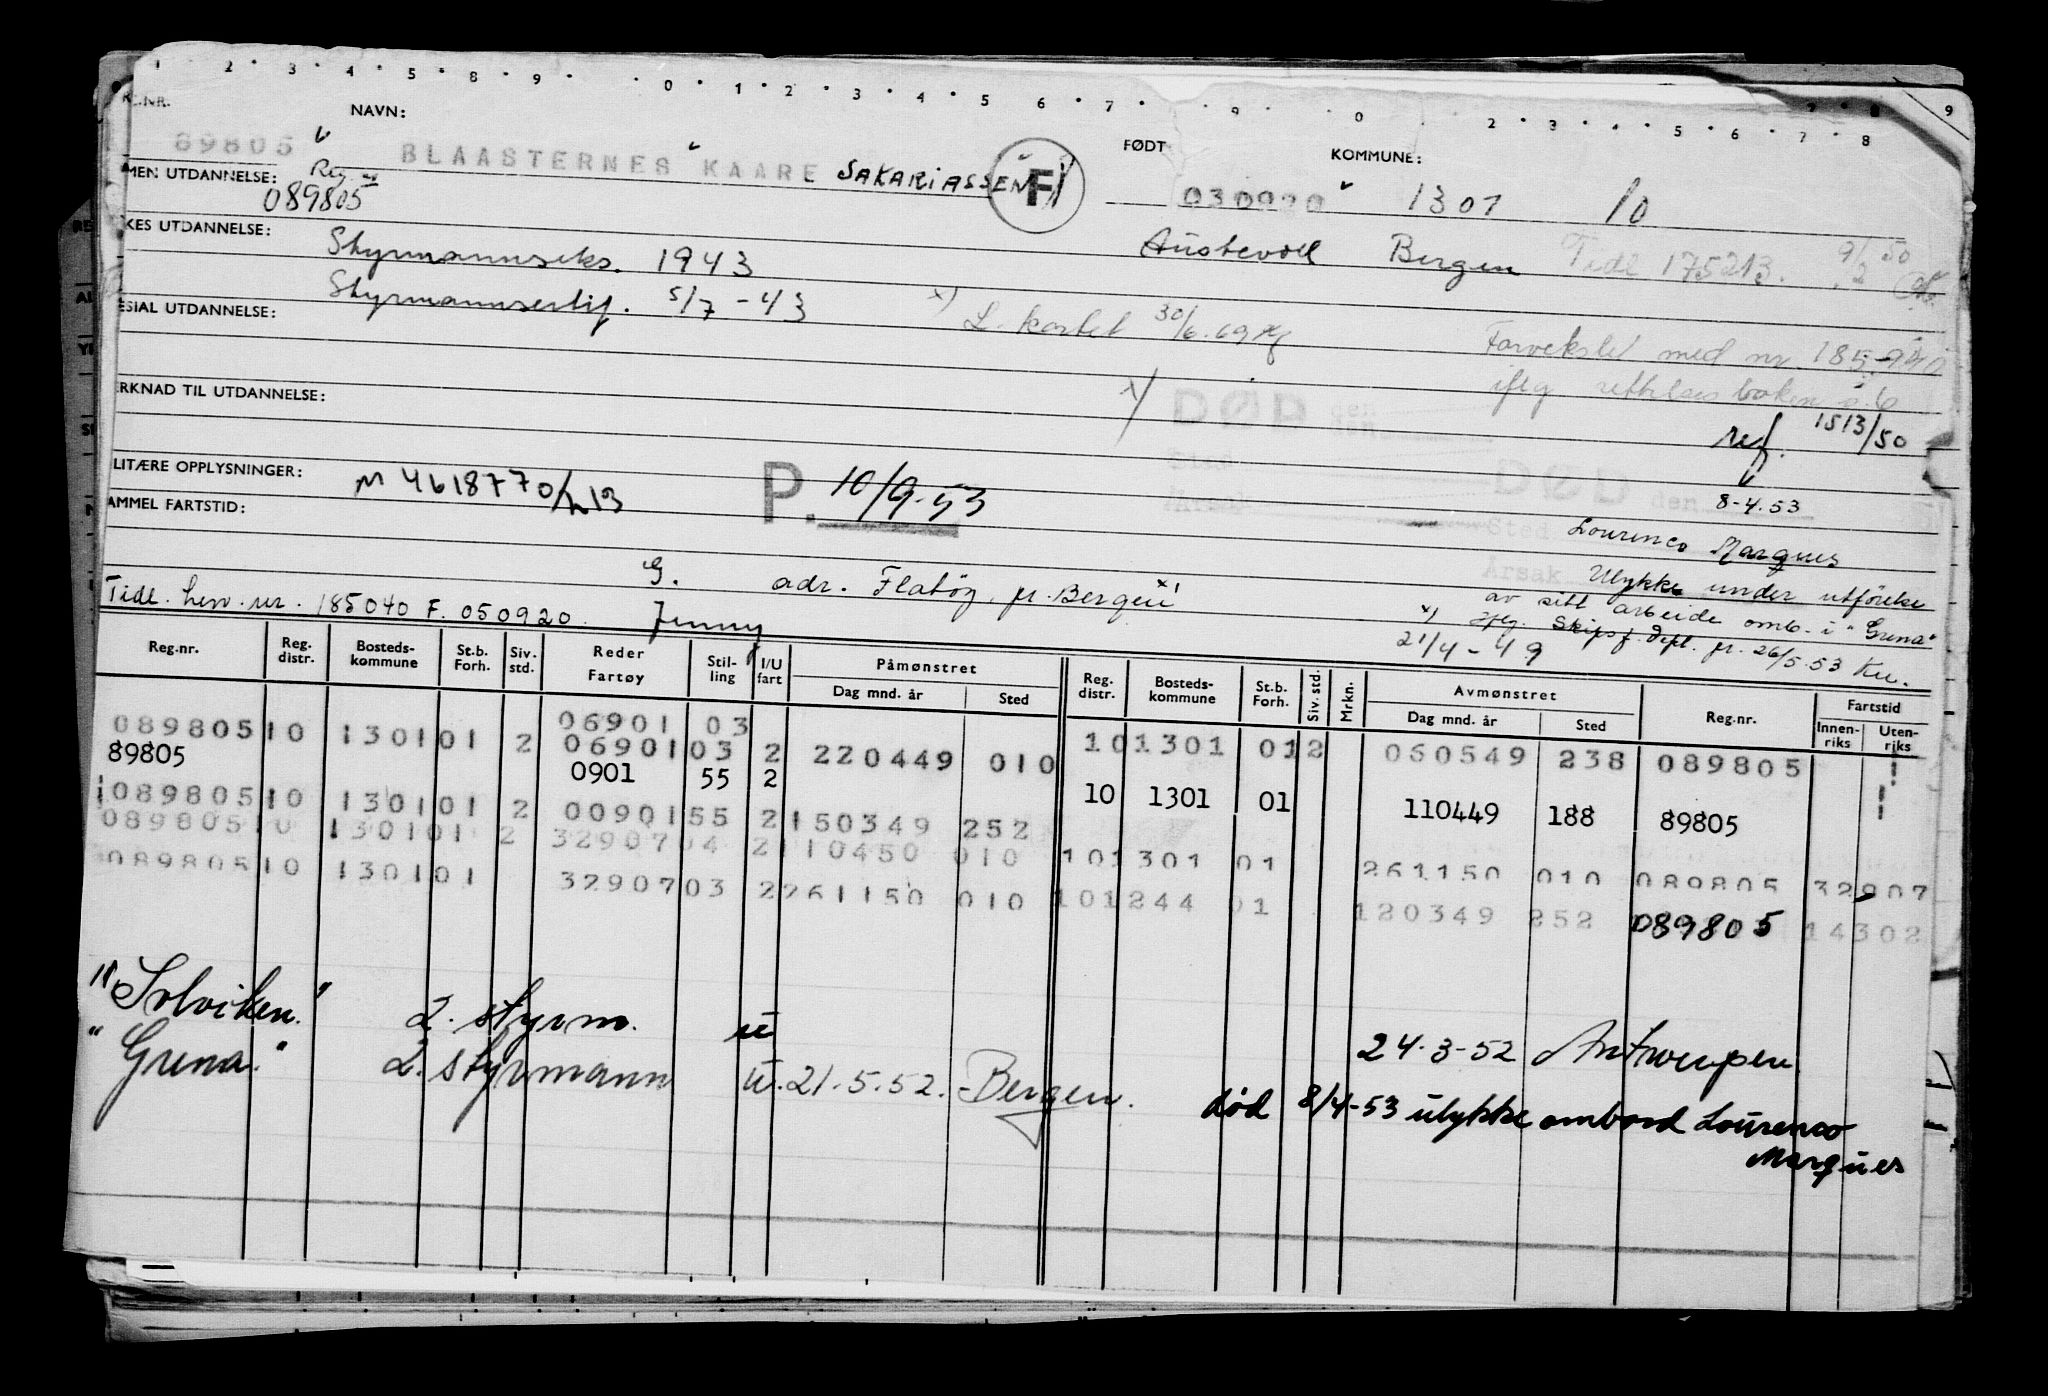 1 2 3 4 5 8 9 0 1 2 3 4 5 6 7 9 0 2 3 4 5 6 7 8 9
NR. NAVN: FØDT KOMMUNE:
89805 BLAASTERNES KAARE SAKARIASSEN F 030920 1301 10
MEN UTDANNELSE: Reg. 089805
KES UTDANNELSE: Styrmannseks. 1943 Austevoll Bergen Tidl 175213. 9/2 50
Styrmannsertif. 5/7-43
SIAL UTDANNELSE: x) L. kortet 30/6.69 Forvekslet med nr. 185
iflg rettelses boken s. 6
ERKNAD TIL UTDANNELSE: x) DØD den ref. 1513/50
LITÆRE OPPLYSNINGER: M 4618770/h13 P. 10/9-53 Årsak DØD den 8-4.53
AMMEL FARTSTID: Sted Lourenco Marques
Årsak Ulykke under utförelse
G. adr. Flatöy pr. Bergen x) av sitt arbeide omb. i "Grena"
Tidl. hen. nr. 185040 F. 050920. Jenny x) iflg. Skipsf. dept. pr. 26/5.53
21/4-49
Reg.nr. Reg. distr. Bosteds-kommune St.b. Forh. Siv. std. Reder Fartøy Stil-ling I/U fart Påmønstret Dag mnd. år Sted Reg. distr. Bosteds-kommune St.b. Forh. Siv. std. Mrkn. Avmønstret Dag mnd. år Sted Reg.nr. Fartstid Innen-riks Uten-riks
06901 03
089805 10 1301 01 2 06901 03 2 220449 010 10 1301 01 2 060549 238 089805
89805 0901 55 2 10 1301 01 110449 188 89805
089805 10 1301 01 2 00901 55 2 150349 252
089805 10 1301 01 2 32907 04 2 110450 010 10 1301 01 261150 010 089805 32907
089805 10 1301 01 32907 03 2 261150 010 10 1244 01 120349 252 089805 14302
"Solviken." 2. styrm. u 24-3-52 Antwerpen.
"Grena." 2. styrmann u. 21.5.52. Bergen. død 8/4-53 ulykke ombord Lourenco
Marques